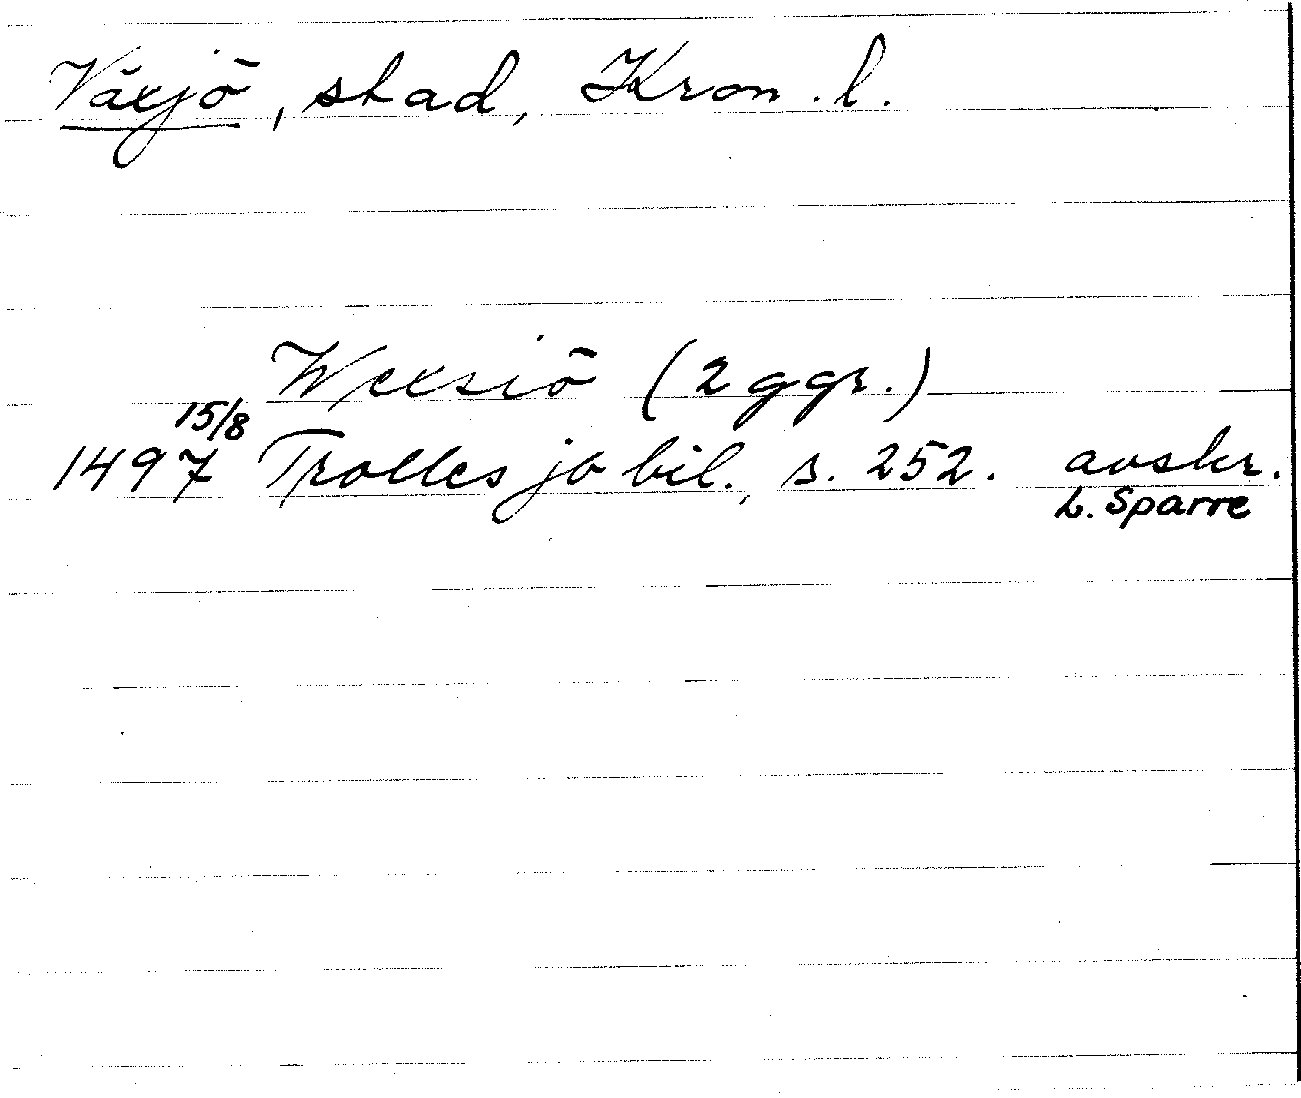 Växjö, stad, Kron. l.
Wexsiö (2 ggr.)
15/8
1497 Trolles jb bil., s. 252. avskr.
L. Sparre